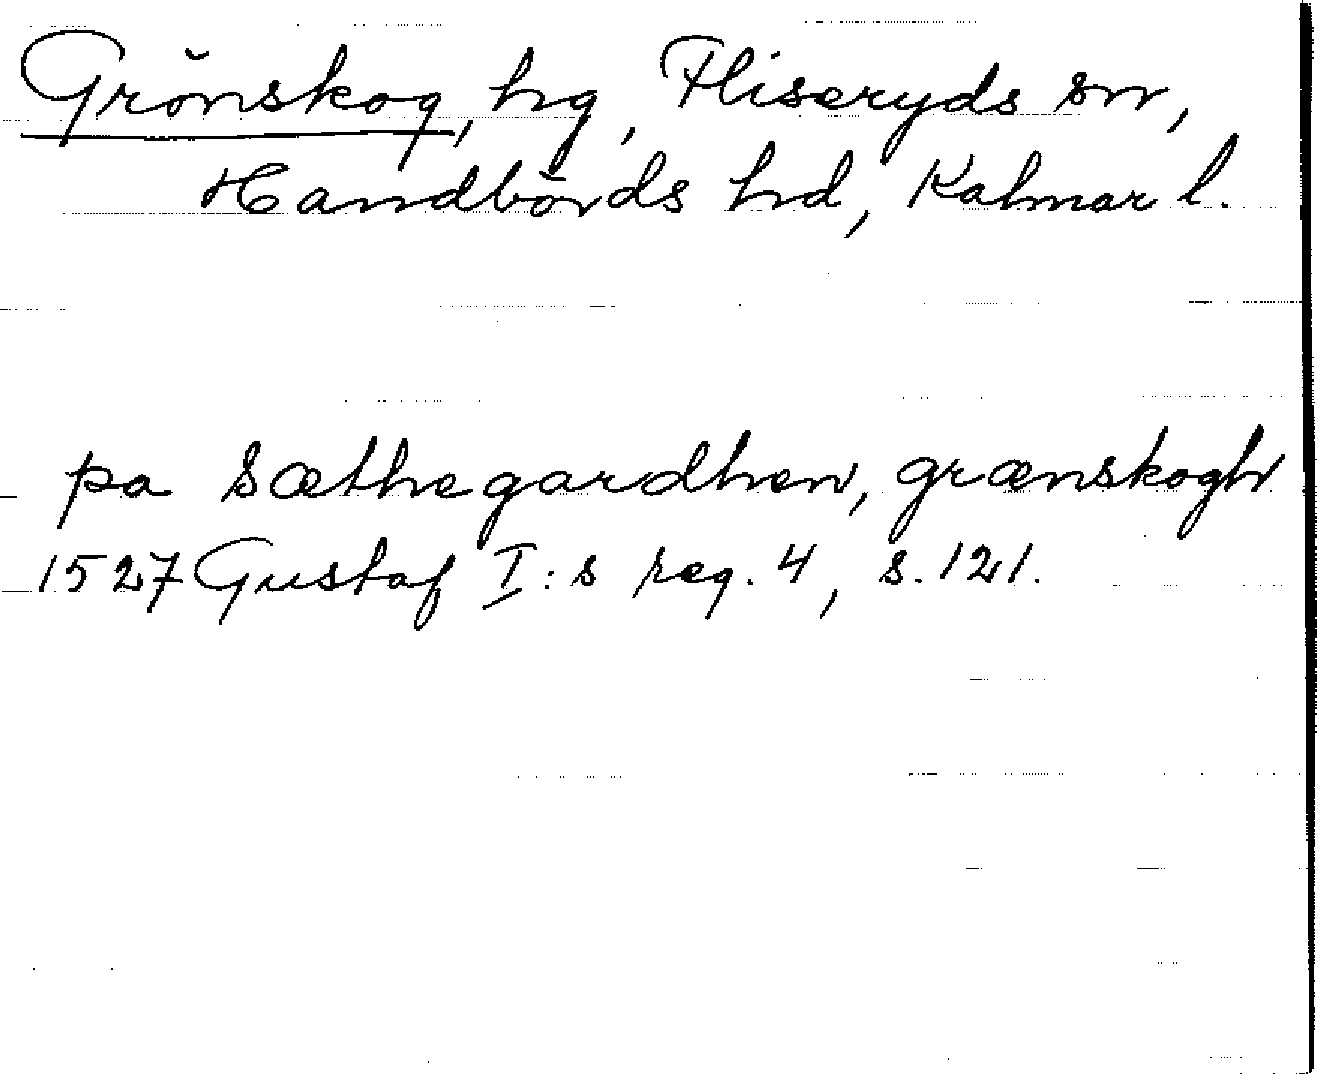 Grönskog, hg, Fliseryds sn,
Handbörds hd, Kalmar l.
pa Sæthegardhen, grænskogh
1527 Gustaf I:s reg. 4, s. 121.